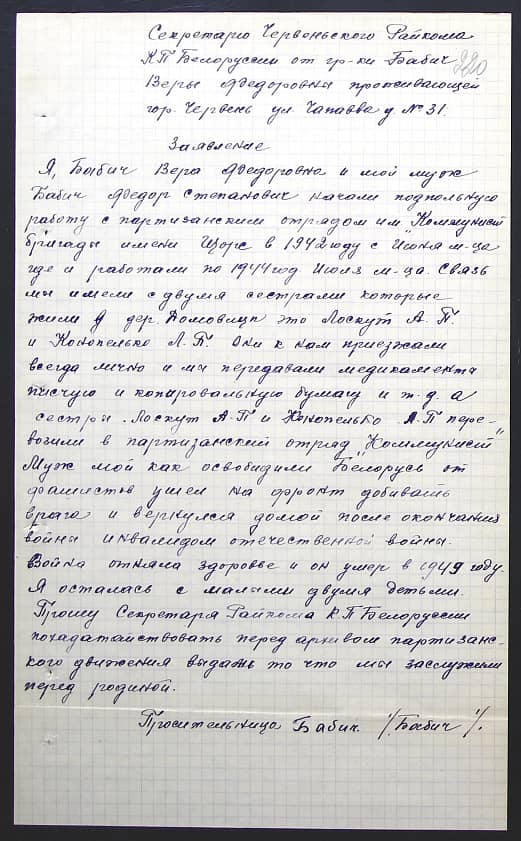 Секретарю Червеньского Райкома
КП Белоруссии от гр-ки Бабич
220
Веры Федоровны проживающей
гор. Червень ул Чапаева д. № 31.
Заявление
Я, Бабич Вера Федоровна и мой муж
Бабич Федор Степанович начали подпольную
работу с партизанским отрядом им. Коммунист
бригады имени Щорс в 1942 году с Июня м-ца
где и работали по 1944 год Июля м-ца. Связь
мы имели с двумя сестрами которые
жили в дер. Домовицк это Лоскут А. П.
и Конопелько Л. П. Они к нам приезжали
всегда лично и мы передавали медикамента
писчую и копировальную бумагу и т. д. а
сестры. Лоскут А. П и Конопелько Л. П пере-
возили в партизанский отряд "Коммунист"
Муж мой как освободили Белорусь от
фашистов ушел на фронт добивать
врага и вернулся домой после окончания
войны инвалидом отечественной войны.
Война отняла здоровье и он умер в 1949 году.
Я осталась с малыми двумя детьми.
Прошу Секретаря Райкома КП Белоруссии
походатайствовать перед архивом партизанс-
кого движения выдать то что мы заслужили
перед родиной.
Просительница Бабич. /Бабич/.